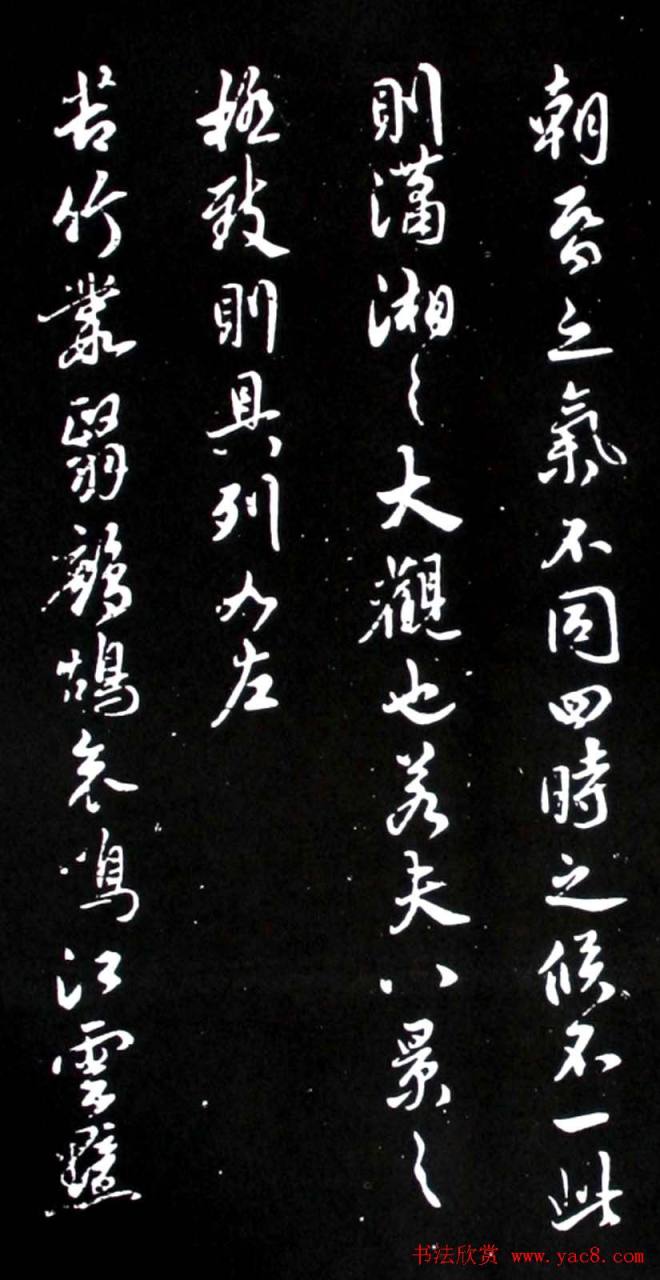 朝昏之氣不同四時之候不一此
則瀟湘之大觀也若夫八景之
極致則具列如左
苦竹叢翳鷓鴣哀鳴江雲黯
书法欣赏 www.yac8.com